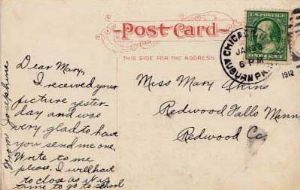 Post Card
THIS SIDE FOR THE ADDRESS
CHICAGO
JA
AUBURN PK.
1912
Dear Mary,
I received your
picture yester-
day and was
very glad to have
you send me one.
Write to me
please. I will have
to close as it is
time to go to school
From Josephine
Miss Mary
Redwood Falls Minn
Redwood Co.